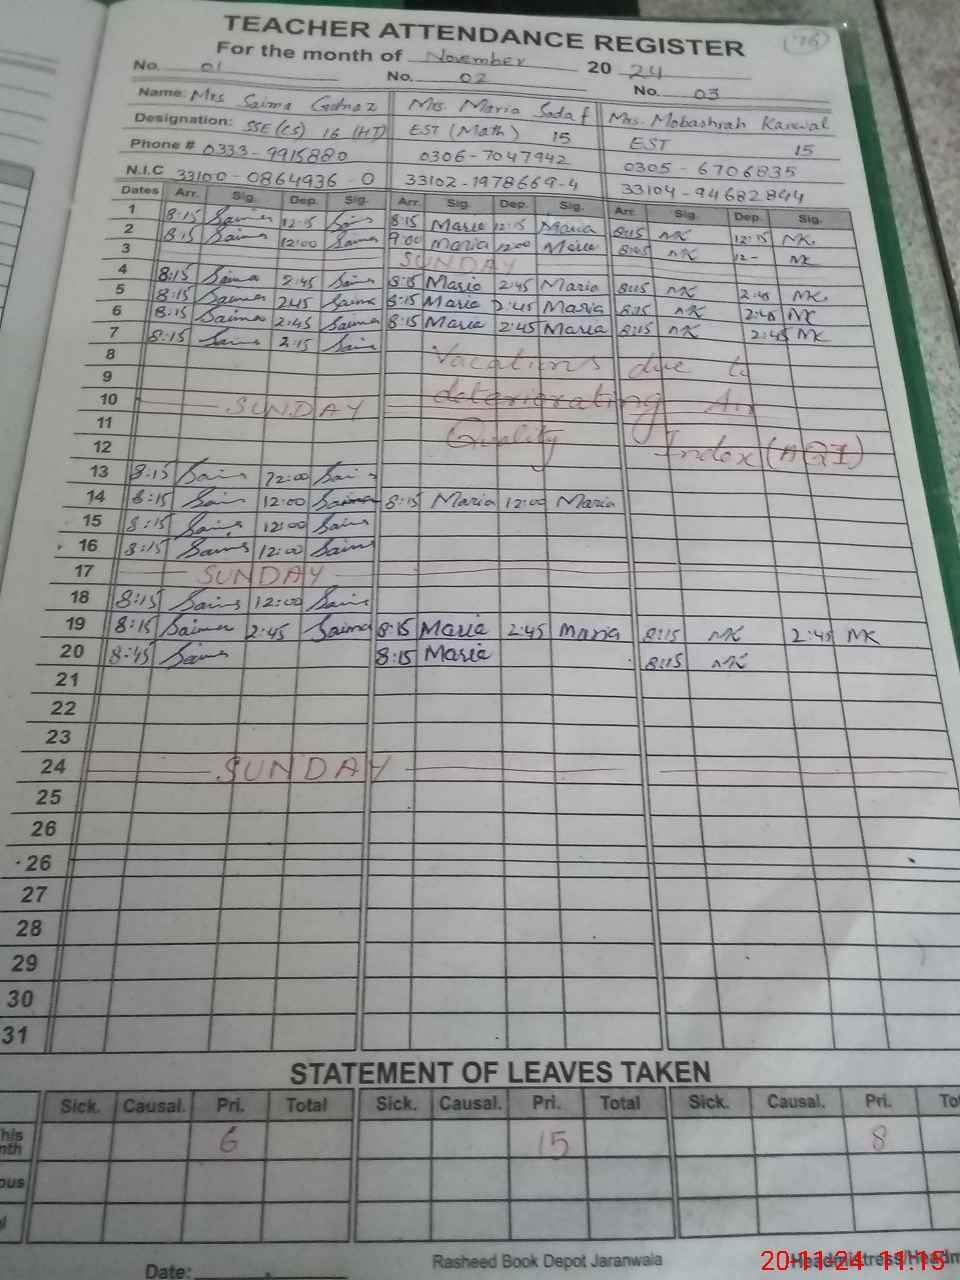 TEACHER ATTENDANCE REGISTER 76
For the month of November 2024
No. 01 No. 02 No. 03
Name: Mrs Saima Gulnaz Mrs. Maria Sadaf Mrs. Mobashrah Kanwal
Designation: SSE (CS) 16 (HT) EST (Math) 15 EST 15
Phone # 0333-9915880 0306-7047942 0305-6706835
N.I.C 33100-0864936-0 33102-1978669-4 33104-94682844
Dates Arr. Sig. Dep. Sig. Arr. Sig. Dep. Sig. Arr. Sig. Dep. Sig.
1 8:15 Saima 12:15 Sai 8:15 Maria 12:15 Maria 8:15 MK 12:15 MK
2 8:15 Saima 12:00 Saima 9:00 Maria 12:00 Maria 8:05 MK 12- MK
3 SUNDAY
4 8:15 Saima 2:45 Saima 8:15 Maria 2:45 Maria 8:15 MK 2:45 MK
5 8:15 Saima 2:45 Saima 8:15 Maria 2:45 Maria 8:15 MK 2:45 MK
6 8:15 Saima 2:45 Saima 8:15 Maria 2:45 Maria 8:15 MK 2:45 MK
7 8:15 Saima 2:15 Saima
8 Vacations due to
9 deteriorating Air
10 SUNDAY
11 Quality Index (AQI)
12
13 8:15 Saima 12:00 Saima
14 8:15 Saima 12:00 Saima 8:15 Maria 12:00 Maria
15 8:15 Saima 12:00 Saima
16 8:15 Saima 12:00 Saima
17 SUNDAY
18 8:15 Saima 12:00 Saima
19 8:15 Saima 2:45 Saima 8:15 Maria 2:45 Maria 8:15 MK 2:45 MK
20 8:45 Saima 8:15 Maria 8:15 MK
21
22
23
24 SUNDAY
25
26
26
27
28
29
30
31
STATEMENT OF LEAVES TAKEN
Sick. Causal. Pri. Total Sick. Causal. Pri. Total Sick. Causal. Pri. To
his nth 6 15 8
ous
l
Date: Rasheed Book Depot Jaranwala Headmistress/Headm
20-11-24 11:15